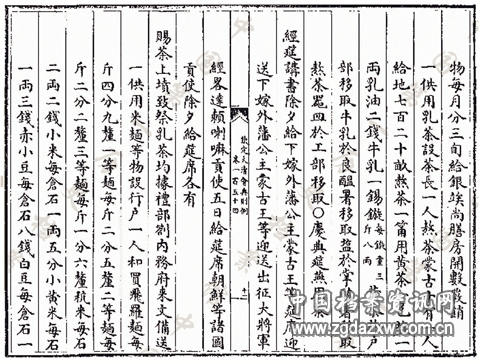 物每月分三旬給銀埃尚膳房開數覈銷
一供用乳茶設茶長一人熬茶蒙古十有八人
給地七百二十畝熬茶一筩用黃茶一包鹽二
兩乳油二錢牛乳一錫鏇每鏇重三斤八兩黃茶於戶
部移取牛乳於良醞署移取鹽於掌醢署移取
熬茶器皿於工部移取○慶典筵燕用茶
經筵講書除夕給下嫁外藩公主蒙古王等筵席迎
送下嫁外藩公主蒙古王等迎送出征大將軍
欽定大清會典則例
卷一百五十四
十二
經畧達賴喇嘛貢使五日給筵席朝鮮等諸國
貢使除夕給筵席各有
賜茶上墳致祭乳茶均據禮部劄內務府來文備送
一供用米麵等物設行戶一人和買飛羅麵每
斤四分九釐一等麵每斤二分五釐二等麵每
斤二分二釐三等麵每斤一分六釐秔米每石
二兩二錢小米每倉石一兩五分小黃米每石
一兩三錢赤小豆每倉石八錢白豆每倉石一
中国档案资讯网
www.zgdazxw.com.cn